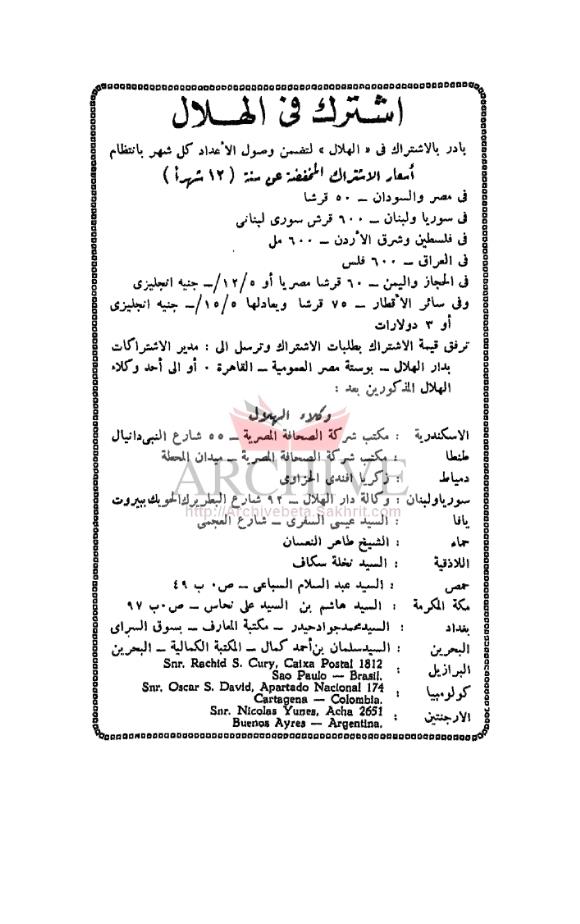 اشترك في الهلال
بادر بالاشتراك في « الهلال » لتضمن وصول الأعداد كل شهر بانتظام
أسعار الاشتراك المخفضة عن سنة ( ١٢ شهراً )
في مصر والسودان ــ ٥٠ قرشا
في سوريا ولبنان ــ ٦٠٠ قرش سورى لبنانى
في فلسطين وشرق الأردن ــ ٦٠٠ مل
في العراق ــ ٦٠٠ فلس
في الحجاز واليمن ــ ٦٠ قرشا مصريا أو ١٢/٥/ــ جنيه انجليزى
وفى سائر الأقطار ــ ٧٥ قرشا ويعادلها ١٥/٥/ــ جنيه انجليزى
أو ٣ دولارات
ترفق قيمة الاشتراك بطلبات الاشتراك وترسل الى : مدير الاشتراكات
بدار الهلال ــ بوستة مصر العمومية ــ القاهرة ٠ أو الى أحد وكلاء
الهلال المذكورين بعد :
وكلاء الهلال
الاسكندرية : مكتب شركة الصحافة المصرية ــ ٥٥ شارع النبى دانيال
طنطا : مكتب شركة الصحافة المصرية ــ ميدان المحطة
دمياط : زكريا افندى الحزاوى
ARCHIVE
سوريا ولبنان : وكالة دار الهلال ــ ٩٢ شارع البطريرك الحويك ببيروت
http://Archivebeta.Sakhrit.com
يافا : السيد عيسى السفرى ــ شارع العجمى
حماه : الشيخ طاهر النعسان
اللاذقية : السيد نخلة سكاف
حمص : السيد عبد السلام السباعى ــ ص٠ ب ٤٩
مكة المكرمة : السيد هاشم بن السيد على نحاس ــ ص٠ب ٩٧
بغداد : السيد محمد جواد حيدر ــ مكتبة المعارف ــ بسوق السراى
البحرين : السيد سلمان بن أحمد كمال ــ المكتبة الكمالية ــ البحرين
البرازيل : Snr. Rachid S. Cury, Caixa Postal 1812
Sao Paulo — Brasil.
كولومبيا : Snr. Oscar S. David, Apartado Nacional 174
Cartagena — Colombia.
الارجنتين : Snr. Nicolas Yunes, Acha 2651
Buenos Ayres — Argentina.